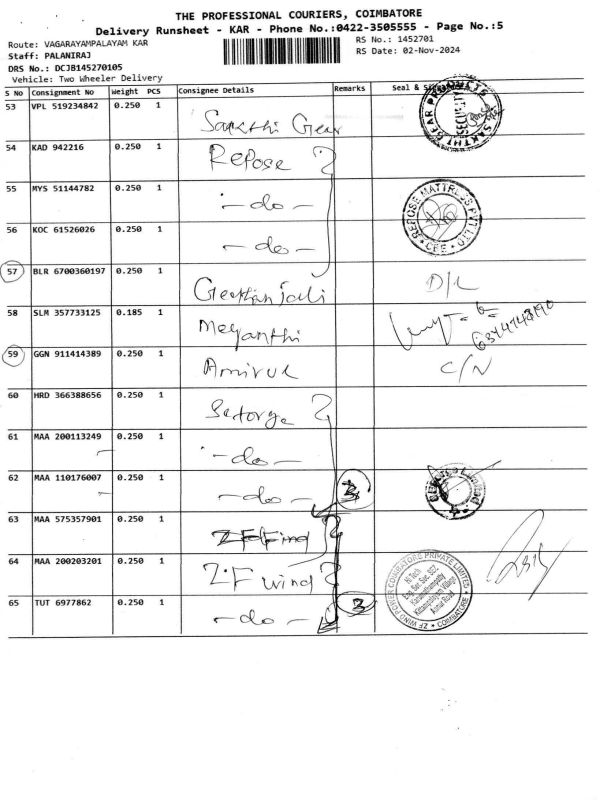 THE PROFESSIONAL COURIERS, COIMBATORE
Delivery Runsheet - KAR - Phone No.:0422-3505555 - Page No.:5
Route: VAGARAYAMPALAYAM KAR RS No.: 1452701
Staff: PALANIRAJ RS Date: 02-Nov-2024
DRS No.: DCJB145270105
Vehicle: Two Wheeler Delivery
S No Consignment No Weight PCS Consignee Details Remarks Seal &
53 VPL 519234842 0.250 1
Sakthi Gear
SAKTHI GEAR PRODUCTS
SECURITY
54 KAD 942216 0.250 1
Repose
55 MYS 51144782 0.250 1
- do -
REPOSE MATTRESS PVT LTD
CBE
56 KOC 61526026 0.250 1
- do -
57 BLR 6700360197 0.250 1
Geethanjali D/L
58 SLM 357733125 0.185 1
Meyanthi
59 GGN 911414389 0.250 1
Amirul C/N
60 HRD 366388656 0.250 1
61 MAA 200113249 0.250 1
- do -
62 MAA 110176007 0.250 1
- do - 3
63 MAA 575357901 0.250 1
ZF Wind
64 MAA 200203201 0.250 1
ZF wind
ZF WIND POWER COIMBATORE PRIVATE LIMITED
COIMBATORE
65 TUT 6977862 0.250 1
- do - 3